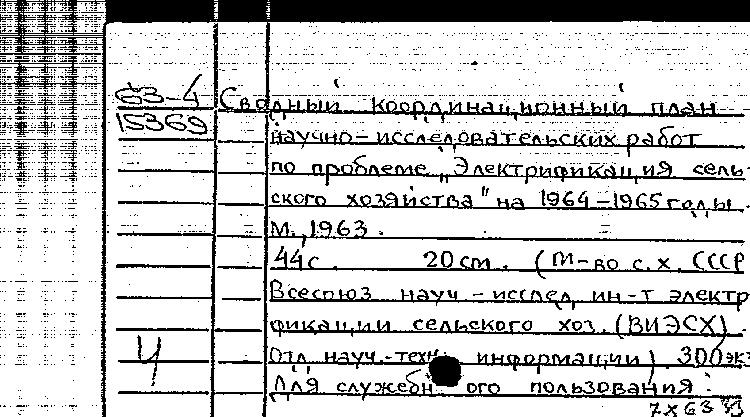 63-4 Сводный координационный план
15369 научно-исследовательских работ
по проблеме „Электрификация сель-
ского хозяйства" на 1964-1965 годы.
М., 1963.
44 с. 20 см. (М-во с.х. СССР
Всесоюз науч-исслед. ин-т электр
фикации сельского хоз. (ВИЭСХ).
Ч Отд науч.-техн. информации). 300 экз
Для служебн ого пользования.